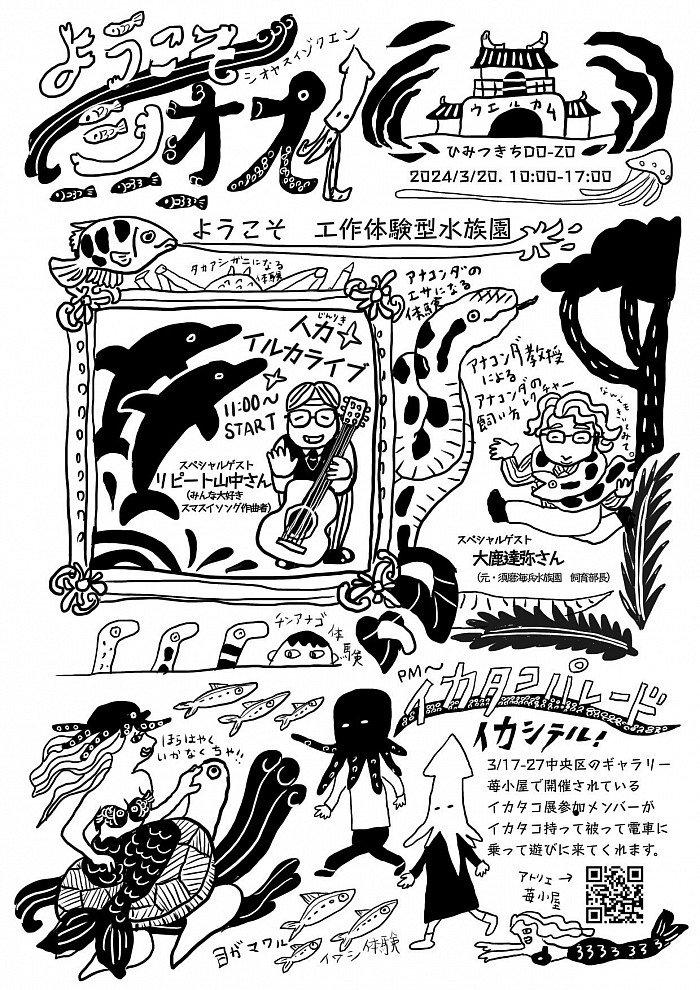 ようこそ
シオヤスイゾクエン
シオスイ
ウエルカム
ひみつきちDO-ZO
2024/3/20. 10:00-17:00
ようこそ 工作体験型水族園
タカアシガニになる
体験
アナコンダの
エサになる
体験
じんりき
人力
イルカライブ
11:00〜
START
スペシャルゲスト
リピート山中さん
(みんな大好き
スマスイソング作曲者)
アナコンダ教授
による
アナコンダの
飼い方レクチャー
スペシャルゲスト
大鹿達弥さん
(元・須磨海浜水族園 飼育部長)
チンアナゴ体験
PM〜
イカタコパレード
イカシテル!
3/17-27中央区のギャラリー
苺小屋で開催されている
イカタコ展参加メンバーが
イカタコ持って被って電車に
乗って遊びに来てくれます。
ほらはやく
いかなくちゃ!!
アトリエ→
苺小屋
ヨガマワル
イワシ体験